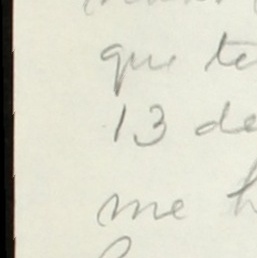 que te
13 de
me h